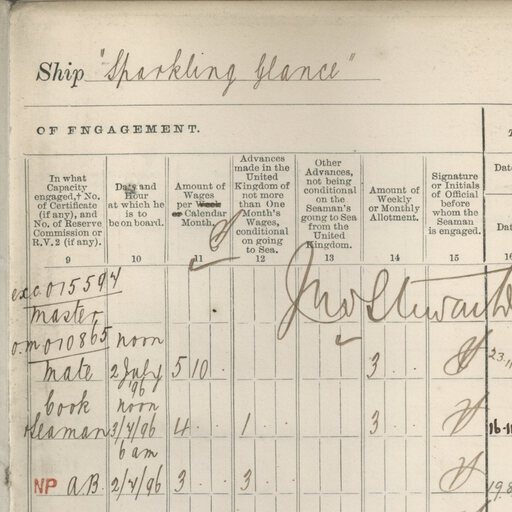 Ship "Sparkling Glance"
OF ENGAGEMENT.
In what
Capacity
engaged,† No.
of Certificate
(if any), and
No. of Reserve
Commission or
R.V.2 (if any).
9
Date and
Hour
at which he
is to
be on board.
10
Amount of
Wages
per Week
or Calendar
Month.
11
Advances
made in the
United
Kingdom of
not more
than One
Month's
Wages,
conditional
on going
to Sea.
12
Other
Advances,
not being
conditional
on the
Seaman's
going to Sea
from the
United
Kingdom.
13
Amount of
Weekly
or Monthly
Allotment.
14
Signature
or Initials
of Official
before
whom the
Seaman
is engaged.
15
Dat
Dat
16
015594
Master
Jno Stewart
o.m 010865 noon
Mate 2 July 5 10 3 23.11
96
Cook noon
& Seaman 3/7/96 4 1 3 16.11
6 am
NP A.B. 2/7/96 3 3 19.8